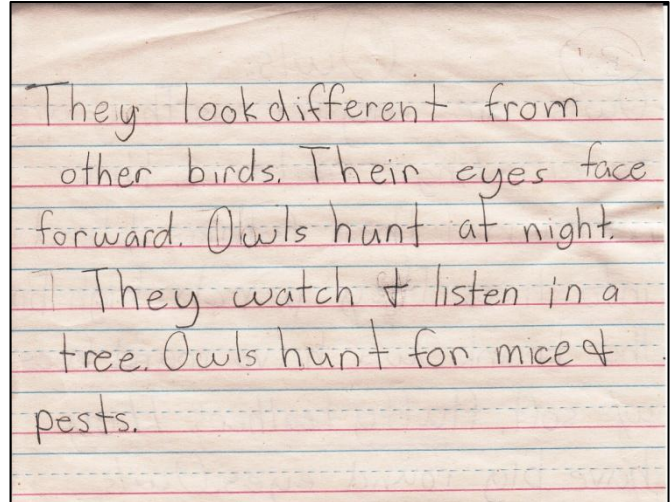 They look different from
other birds. Their eyes face
forward. Owls hunt at night.
They watch & listen in a
tree. Owls hunt for mice &
pests.